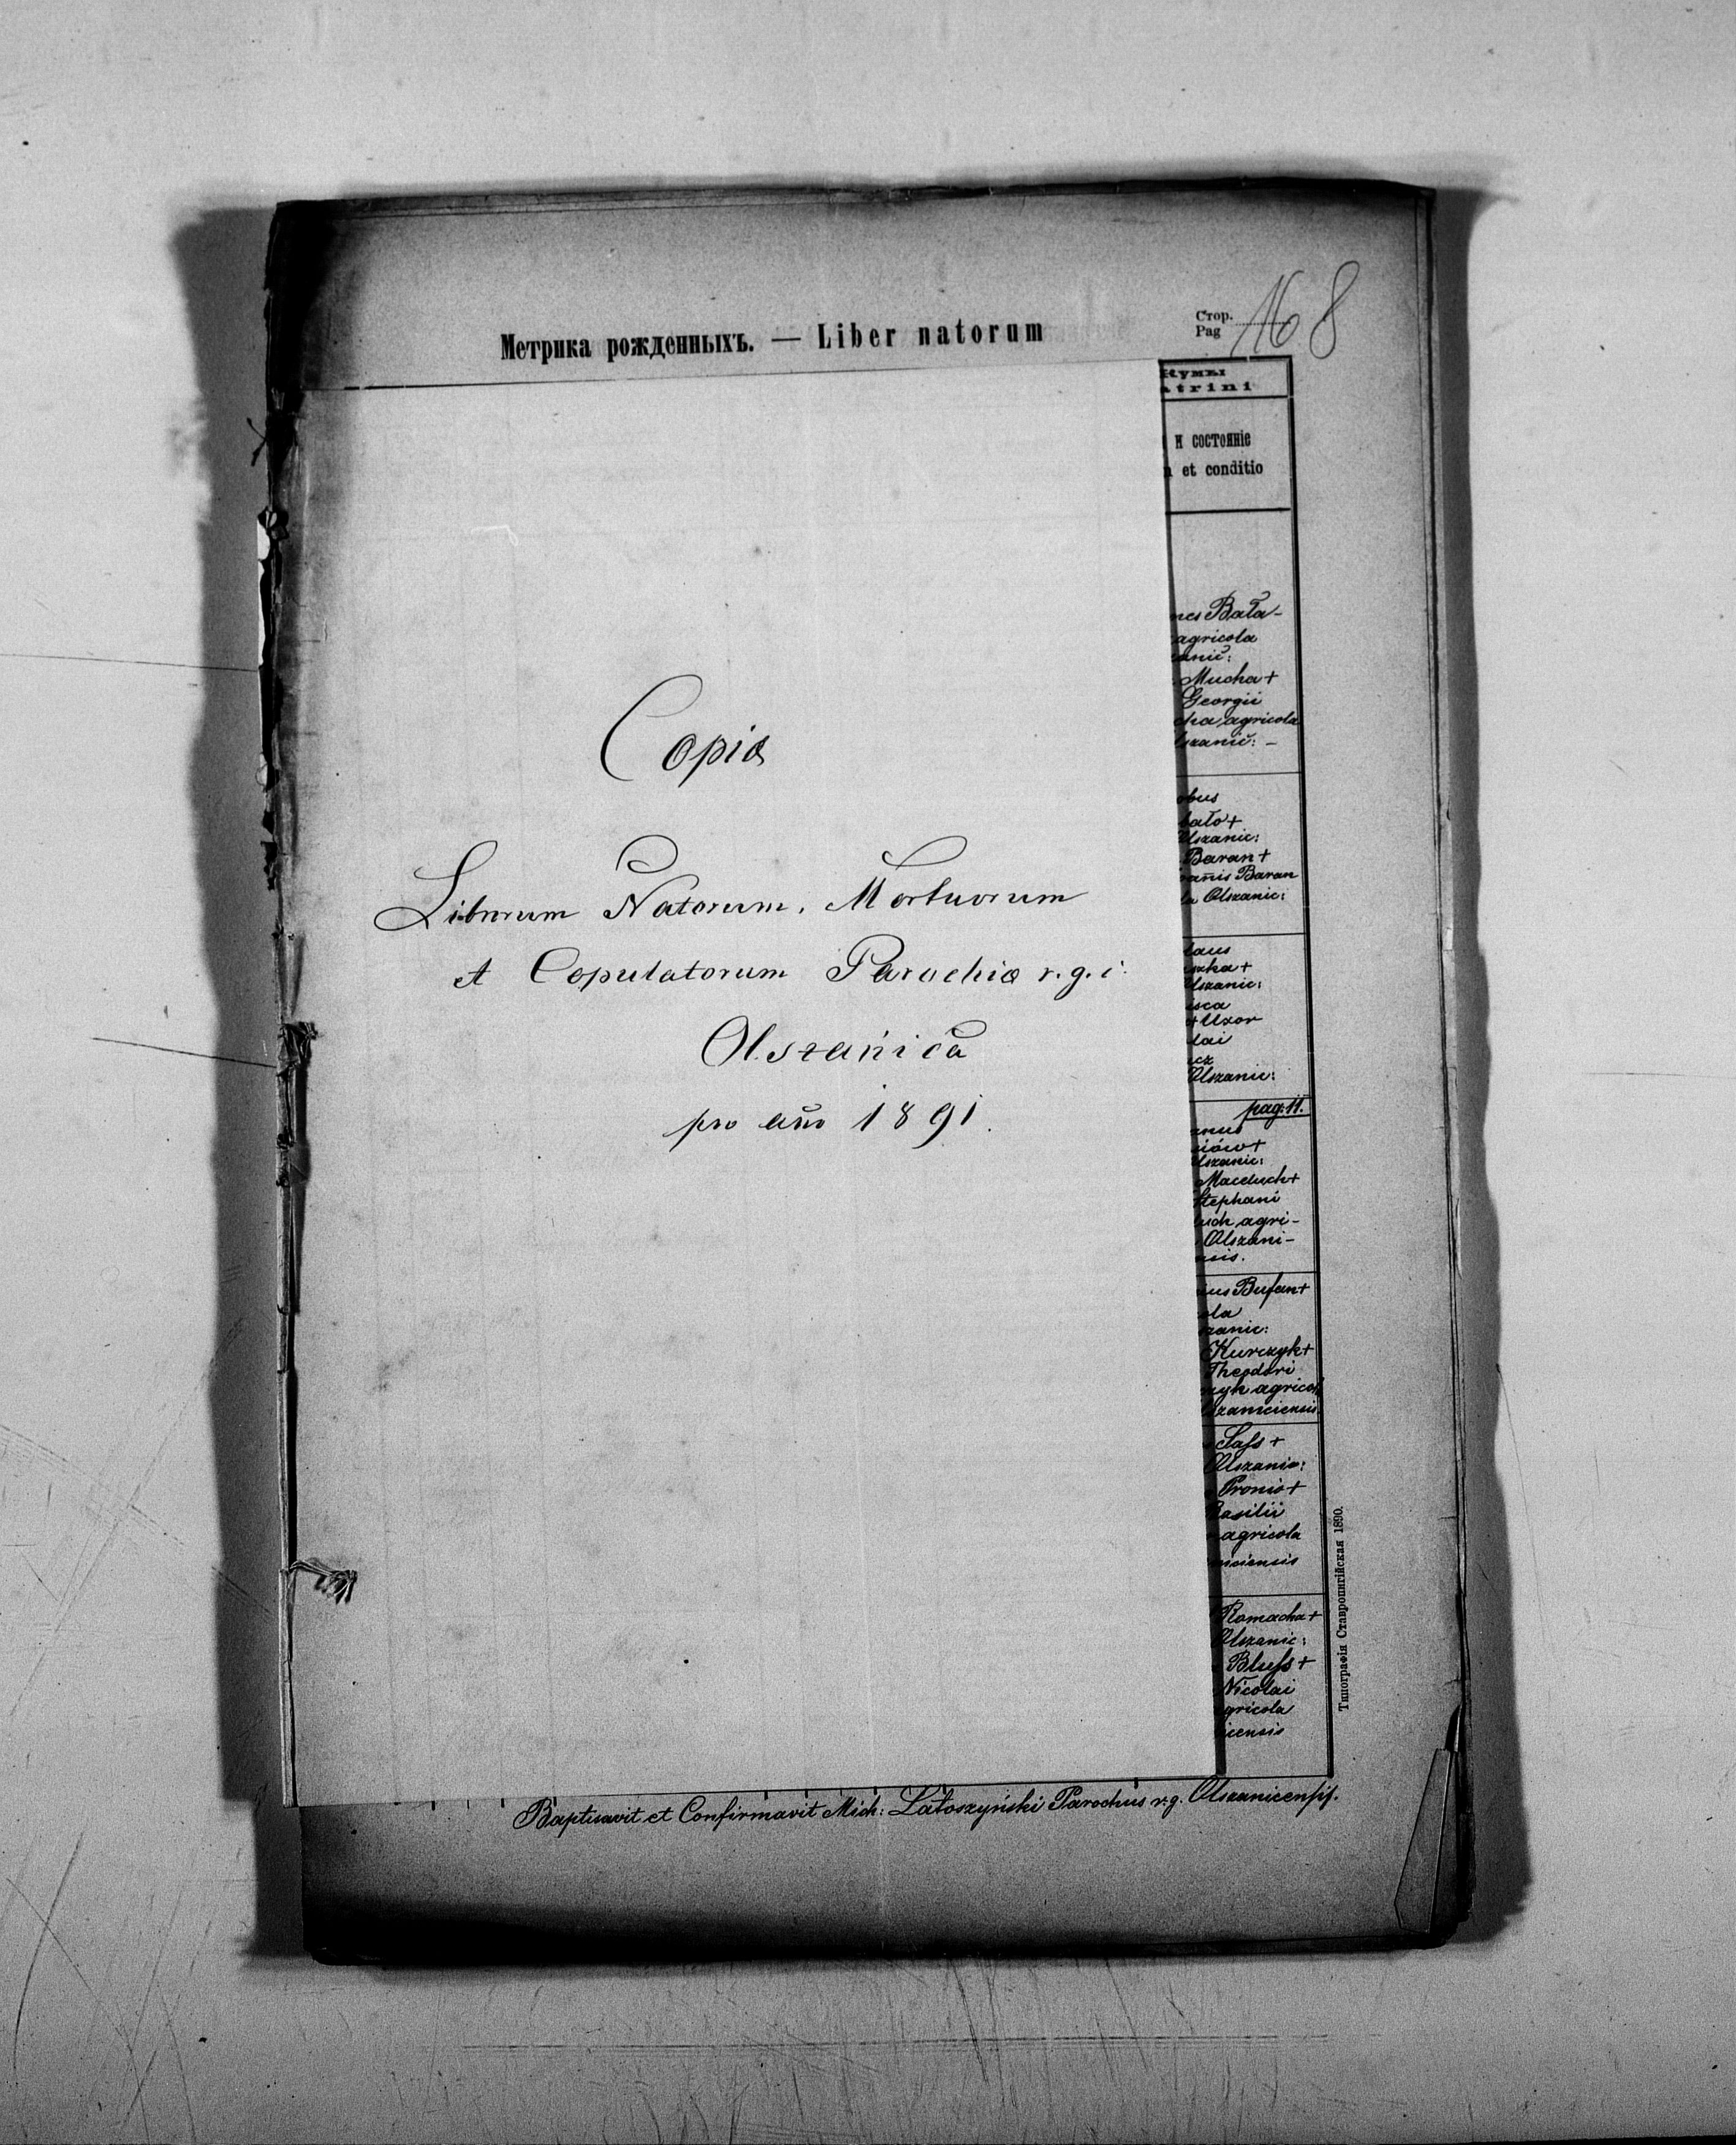 Метрика рожденныхъ. — Liber natorum
Стор.
Pag
168
Кумы
atrini
и состояніе
et conditio
Copia
Librorum Natorum, Mortuorum
et Copulatorum Parochiæ r. g. i
Olszanica
pro año 1891.
nes Bała-
agricola
zanic:
Mucha+
Georgii
cha agricola
lszanic: -
obus
bało+
lszanic:
Baran+
oañis Baran
la Olszanic:
laus
szka+
lszanic:
isca
+Uxor
lai
icz
Olszanic:
pag: 11.
anus
ciów+
lszanic:
Maceluch+
Stephani
uch agri-
Olszani-
nsis.
ius Bufan+
ola
zanic:
Kurczyk+
Theodori
zyk agricol
lszaniciensis
Sass +
Olszanic:
Pronio+
Basilii
agricola
niciensis
Romacha+
Olszanic:
Bluss +
Nicolai
gricola
iciensis
Типографія Ставропигійская 1890.
Baptisavit et Confirmavit Mich: Łatoszyński Parochus r. g. Olszanicensis.